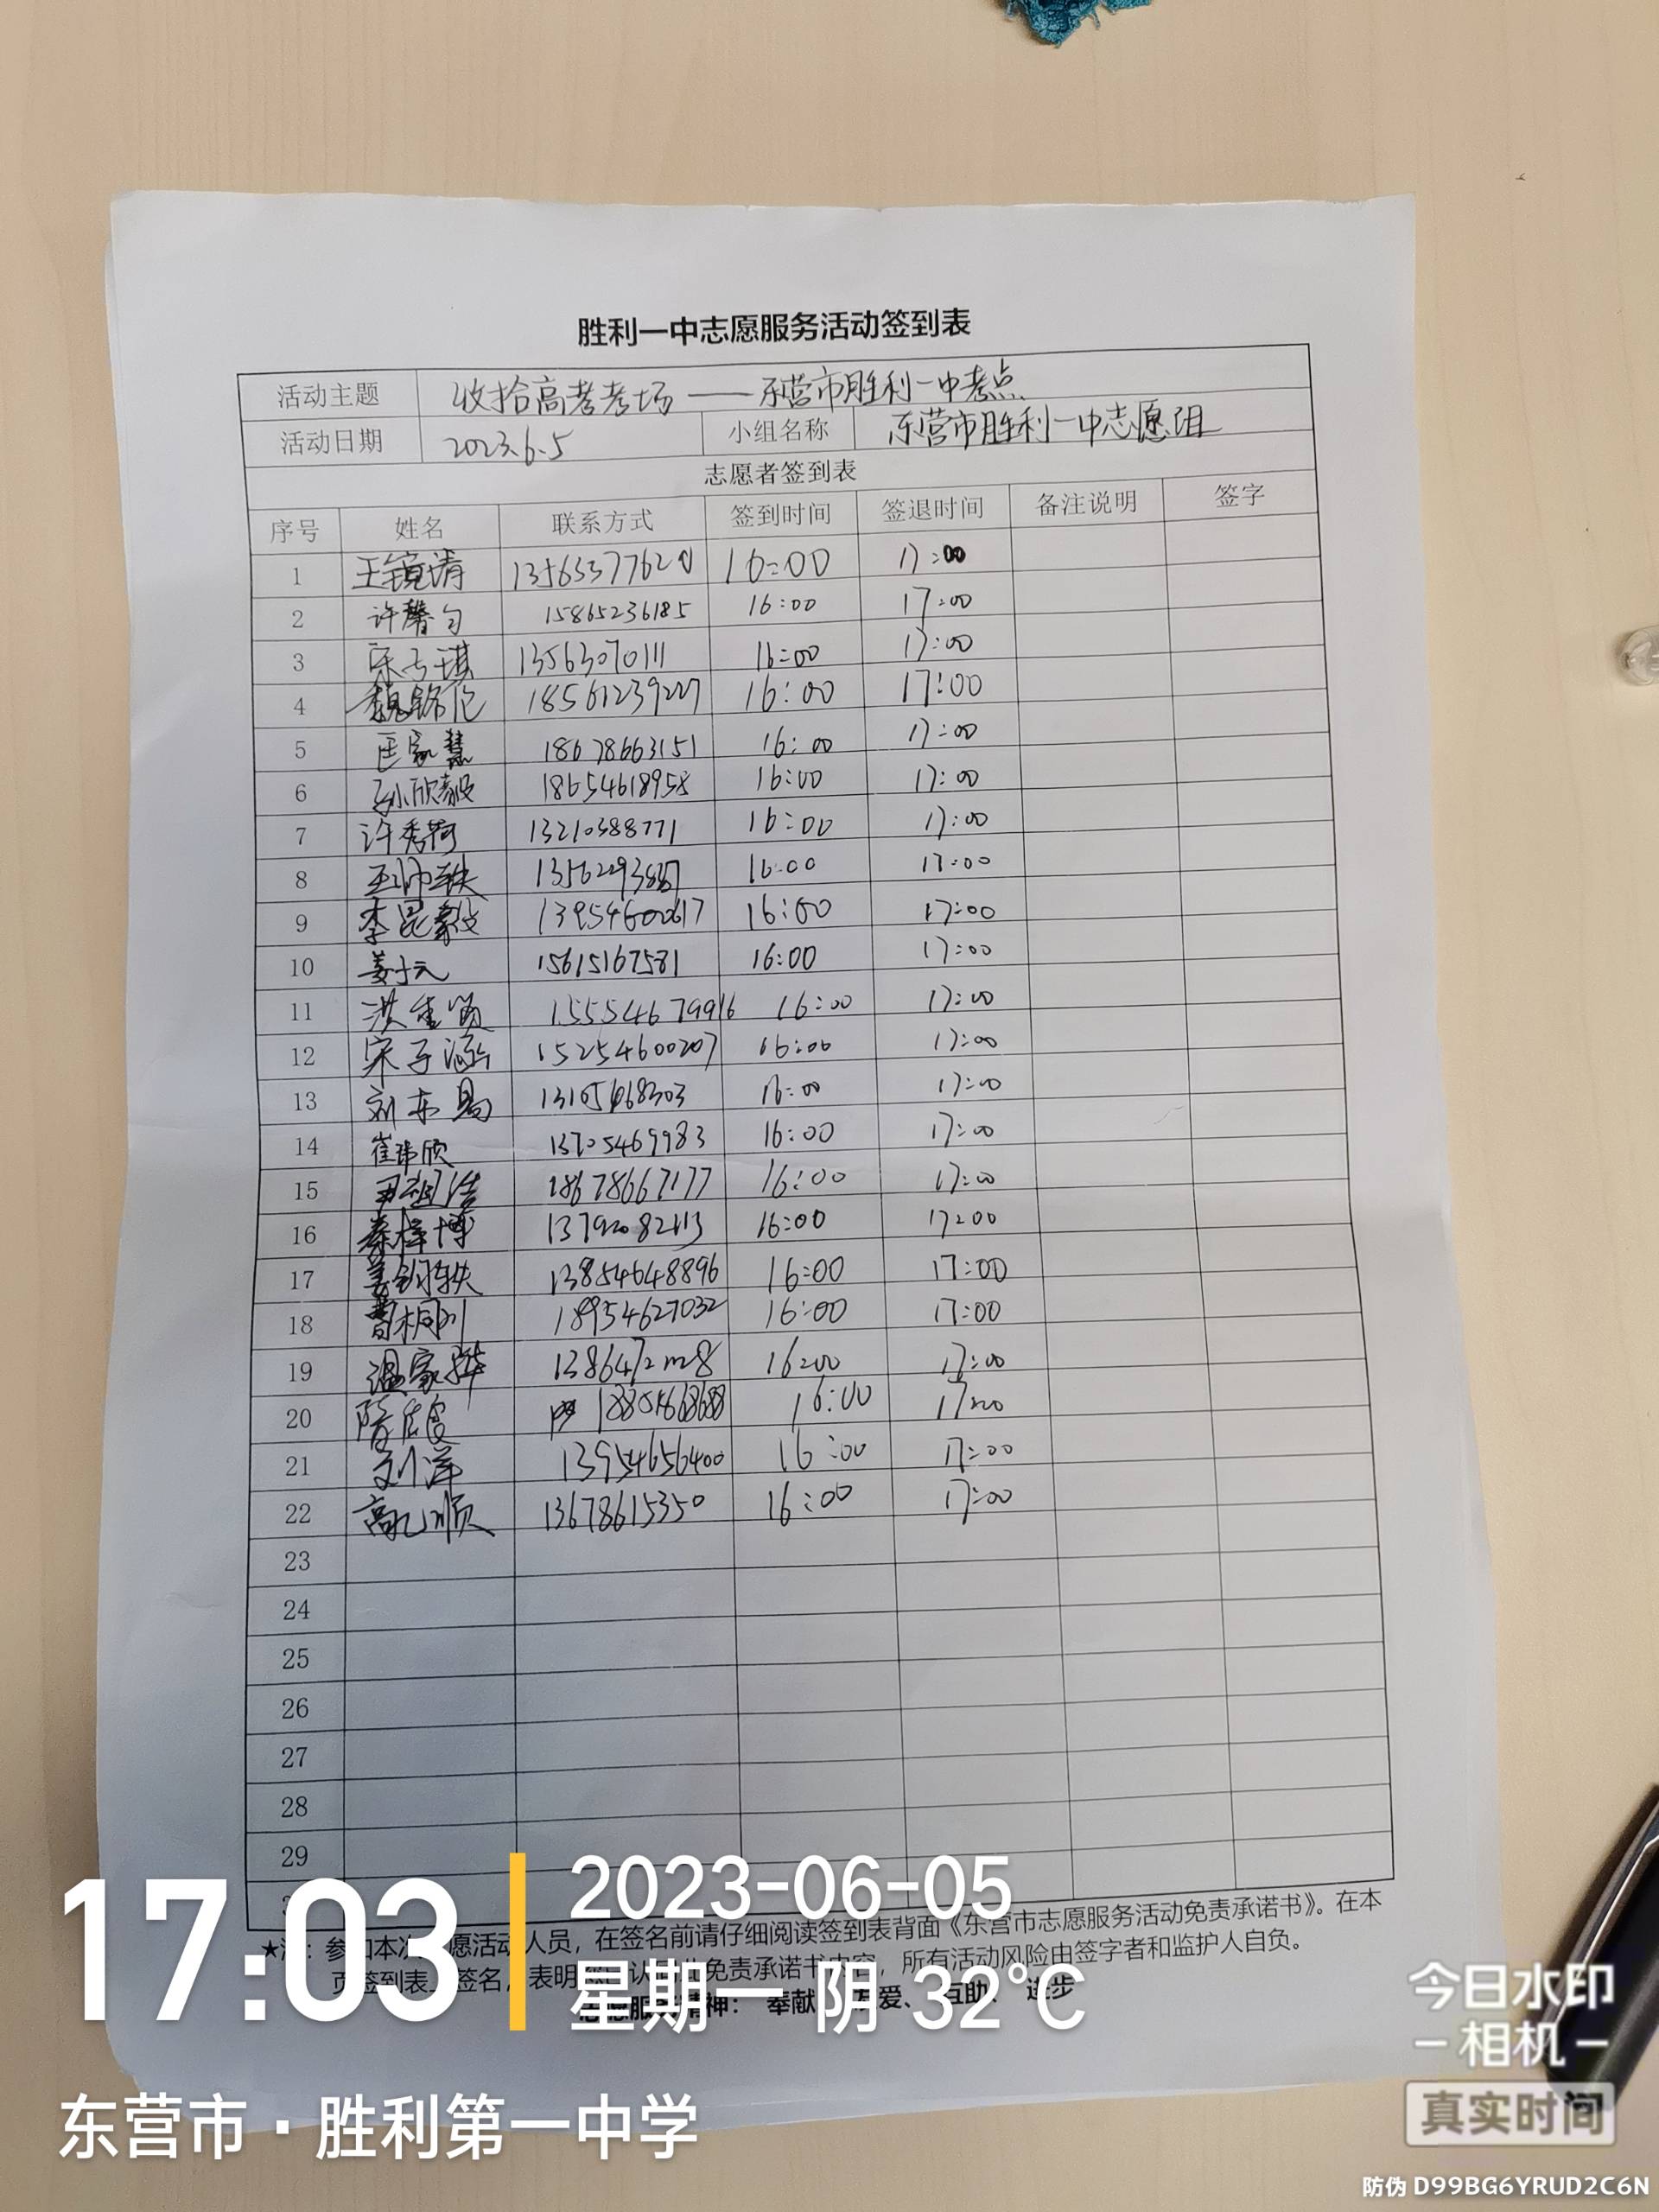 胜利一中志愿服务活动签到表
活动主题 收拾高考考场——东营市胜利一中考点
活动日期 2023.6.5 小组名称 东营市胜利一中志愿组
志愿者签到表
序号 姓名 联系方式 签到时间 签退时间 备注说明 签字
1 王镜清 16:00 17:00
2 许馨匀 15865236185 16:00 17:00
3 13563070111 16:00 17:00
4 魏铭伦 18561239227 16:00 17:00
5 匡家慧 18678663151 16:00 17:00
6 孙欣毅 18654618958 16:00 17:00
7 许秀荷 13210388771 16:00 17:00
8 16:00 17:00
9 李昆毅 13954600617 16:00 17:00
10 姜于元 15615167581 16:00 17:00
11 16:00 17:00
12 宋子涵 15254600207 16:00 17:00
13 16:00 17:00
14 崔玮欣 13705469983 16:00 17:00
15 18678667177 16:00 17:00
16 秦梓博 16:00 17:00
17 13854648896 16:00 17:00
18 曹桐川 18954627032 16:00 17:00
19 温家骅 16:00 17:00
20 16:00 17:00
21 刘洋 13954656400 16:00 17:00
22 高弘顺 13678615350 16:00 17:00
23
24
25
26
27
28
29
★注：参加本次志愿活动人员，在签名前请仔细阅读签到表背面《东营市志愿服务活动免责承诺书》。在本
页签到表上签名，表明 认 免责承诺书内容，所有活动风险由签字者和监护人自负。
志愿服务精神： 奉献 友爱、 互助、 进步
17:03
2023-06-05
星期一 阴 32℃
东营市·胜利第一中学
今日水印
-相机-
真实时间
防伪 D99BG6YRUD2C6N